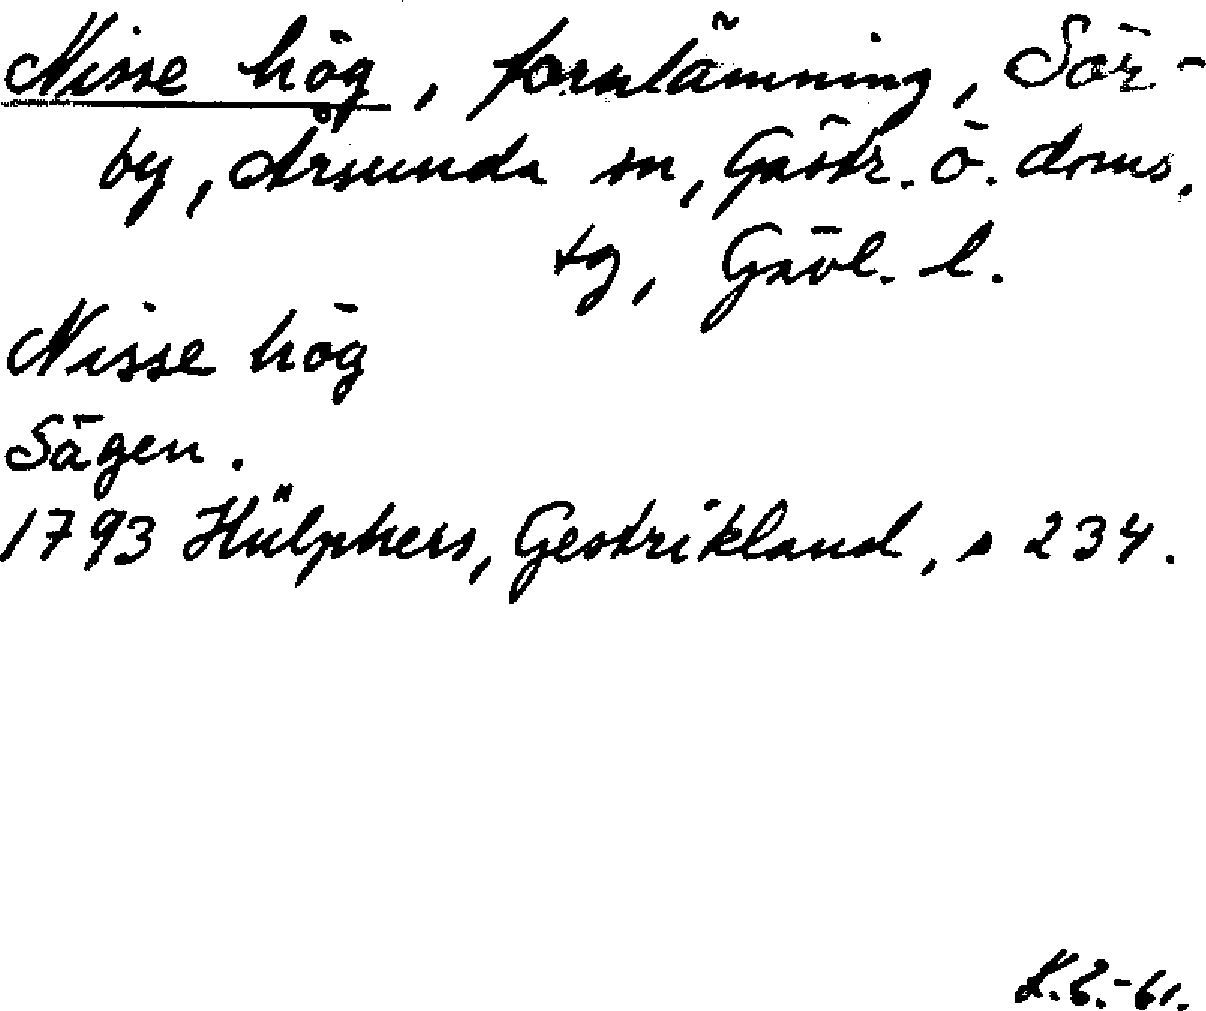 Nisse hög, fornlämning, Sör-
by, Årsunda sn, Gästr. ö. doms.
tg, Gävl. l.
Nisse hög
Sägen.
1793 Hülphers, Gestrikland, s 234.
K.E.-61.